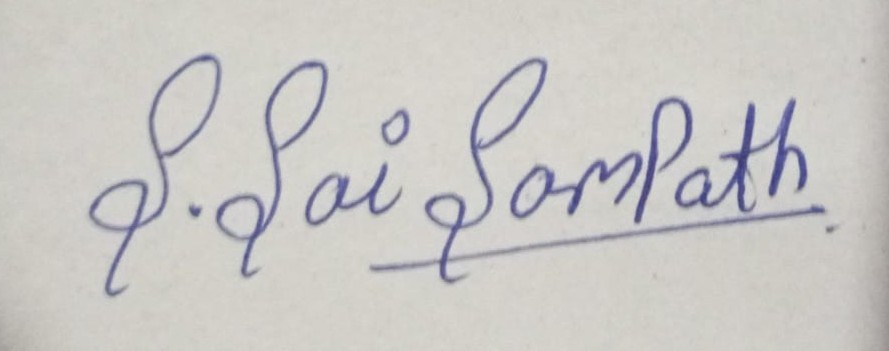 S. Sai Sampath.